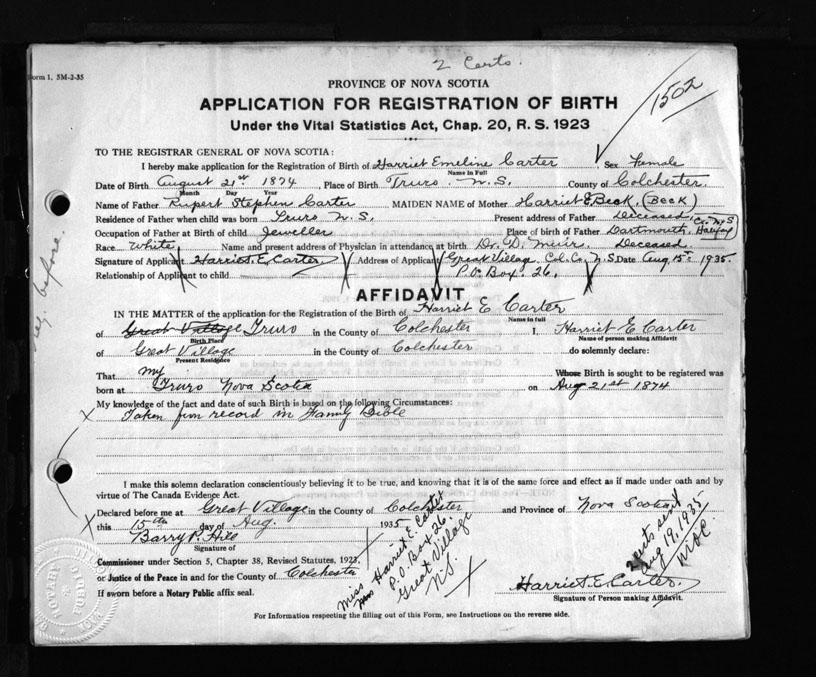 2 Certs.
Form 1, 5M-2-35
PROVINCE OF NOVA SCOTIA
APPLICATION FOR REGISTRATION OF BIRTH
Under the Vital Statistics Act, Chap. 20, R. S. 1923
TO THE REGISTRAR GENERAL OF NOVA SCOTIA:
I hereby make application for the Registration of Birth of Harriet Emeline Carter Sex Female
Name in Full
Date of Birth August 21st 1874, Place of Birth Truro N.S. County of Colchester.
Month Day Year
Name of Father Rupert Stephen Carter MAIDEN NAME of Mother Harriet E Beak, (Beak)
Residence of Father when child was born Truro N.S. Present address of Father Deceased,
Occupation of Father at Birth of child Jeweller Place of birth of Father Dartmouth, Halifax Co. N.S
Race White Name and present address of Physician in attendance at birth Dr. D. Muir. Deceased.
Signature of Applicant Harriet. E. Carter. Address of Applicant Great Village. Col. Co. N.S. Date Aug 15th 1935.
Relationship of Applicant to child P.O. Box. 26.
AFFIDAVIT
IN THE MATTER of the application for the Registration of the Birth of Harriet E Carter
Name in full
of Great Village Truro in the County of Colchester I, Harriet E Carter
Birth Place Name of person making Affidavit
of Great Village in the County of Colchester do solemnly declare:
Present Residence
That my Whose Birth is sought to be registered was
born at Truro Nova Scotia on Aug 21st 1874
My knowledge of the fact and date of such Birth is based on the following Circumstances:
Taken from record in Family Bible
I make this solemn declaration conscientiously believing it to be true, and knowing that it is of the same force and effect as if made under oath and by
virtue of The Canada Evidence Act.
Declared before me at Great Village in the County of Colchester and Province of Nova Scotia
this 15th day of Aug. 1935
Barry P. Hill
Signature of
Commissioner under Section 5, Chapter 38, Revised Statutes, 1923,
or Justice of the Peace in and for the County of Colchester
If sworn before a Notary Public affix seal.
Miss Harriet E. Carter
P.O. Box 26
Great Village
N.S.
2 certs sent
Aug 19, 1935
Harriet. E. Carter.
Signature of Person making Affidavit.
For Information respecting the filling out of this Form, see Instructions on the reverse side.